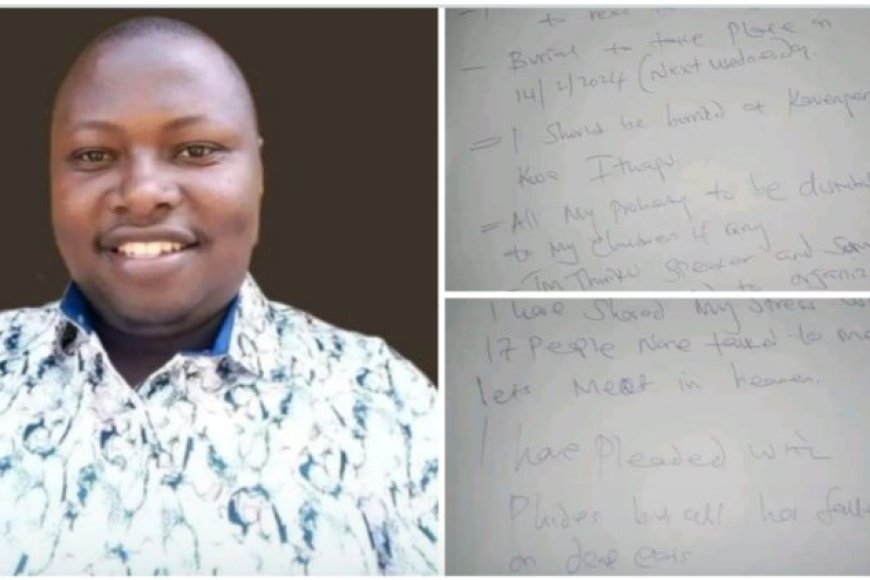 to rest
- Burial to take place on
14/2/2024 (Next Wednesday.
= I should be buried at
Kwa Ithagu.
= All my property to be
to my children if any
Speaker and
to organiz
I have shared my stress
17 People None talked to me
lets meet in heaven.
I have pleaded with
but all has
on deaf ears